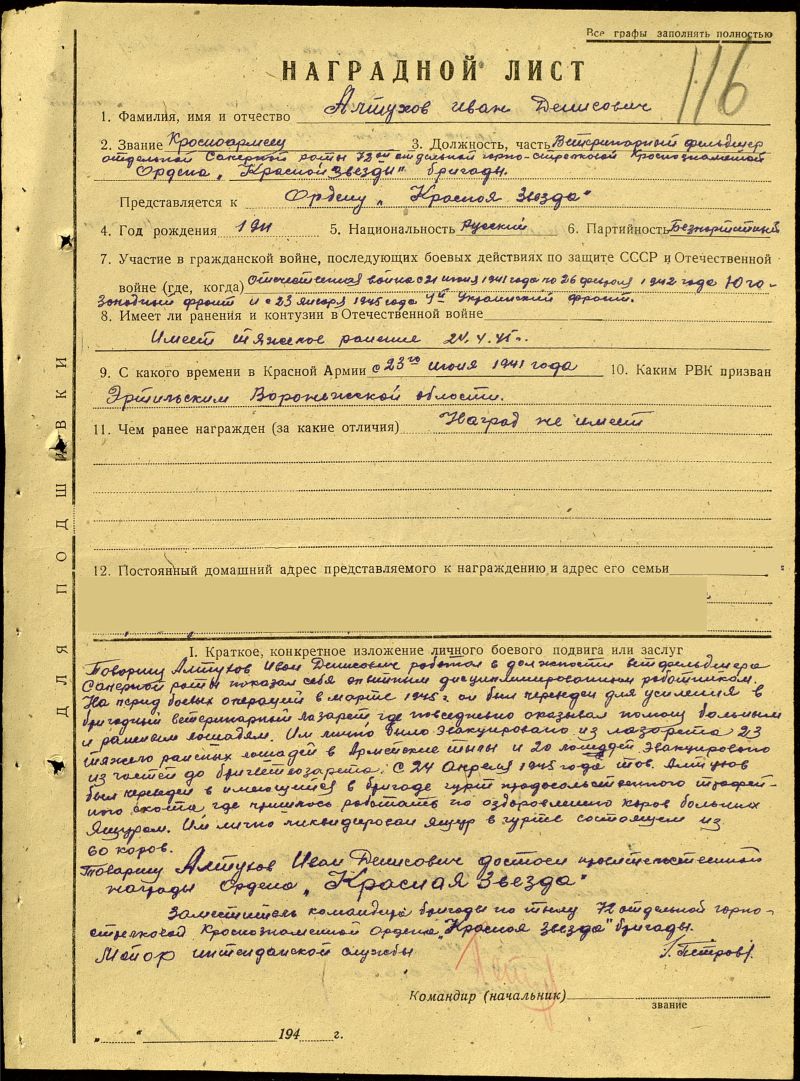 Все графы заполнять полностью
116
НАГРАДНОЙ ЛИСТ
1. Фамилия, имя и отчество Алтухов Иван Денисович
2. Звание Красноармеец 3. Должность, часть Ветеринарный фельдшер
отдельной Саперной роты 72ой отдельной горно-стрелковой Краснознаменной
Ордена „Красной Звезды" бригады.
Представляется к Ордену „Красная Звезда"
4. Год рождения 1911 5. Национальность Русский 6. Партийность Безпартийный
7. Участие в гражданской войне, последующих боевых действиях по защите СССР и Отечественной
войне (где, когда) Отечественная война с 21 июня 1941 года по 26 1942 года Юго-
Западный фронт и с 23 января 1945 года 4ый Украинский фронт.
8. Имеет ли ранения и контузии в Отечественной войне
Имеет тяжелое ранение 24.4.45г.
9. С какого времени в Красной Армии с 23го июня 1941 года 10. Каким РВК призван
Эртильским Воронежской области.
11. Чем ранее награжден (за какие отличия) Наград не имеет
12. Постоянный домашний адрес представляемого к награждению и адрес его семьи
I. Краткое, конкретное изложение личного боевого подвига или заслуг
Товарищ Алтухов Иван Денисович работал в должности ветфельдшера
Саперной роты показал себя опытным дисциплинированным работником.
На период боевых операций в марте 1945 г. он был переведен для усиления в
бригадный ветеринарный лазарет где повседневно оказывал помощь больным
и раненым лошадям. Им лично было эвакуировано из лазарета 23
тяжело раненых лошадей в Армейские тылы и 20 лошадей эвакуировано
из частей до бригветлазарета. С 24 Апреля 1945 года тов. Алтухов
был переведен в имеющийся в бригаде гурт продовольственного трофей-
ного скота где пришлось работать по оздоровлению коров больных
Ящуром. Им лично ликвидирован ящур в гурте состоящем из
60 коров.
Товарищ Алтухов Иван Денисович достоен правительственной
награды Ордена „Красная Звезда"
Заместитель командира бригады по тылу 72 отдельной горно-
стрелковой Краснознаменной Ордена „Красная Звезда" бригады.
Майор интенданской службы /Петров/.
Командир (начальник)
звание
„ " 194 г.
ДЛЯ ПОДШИВКИ